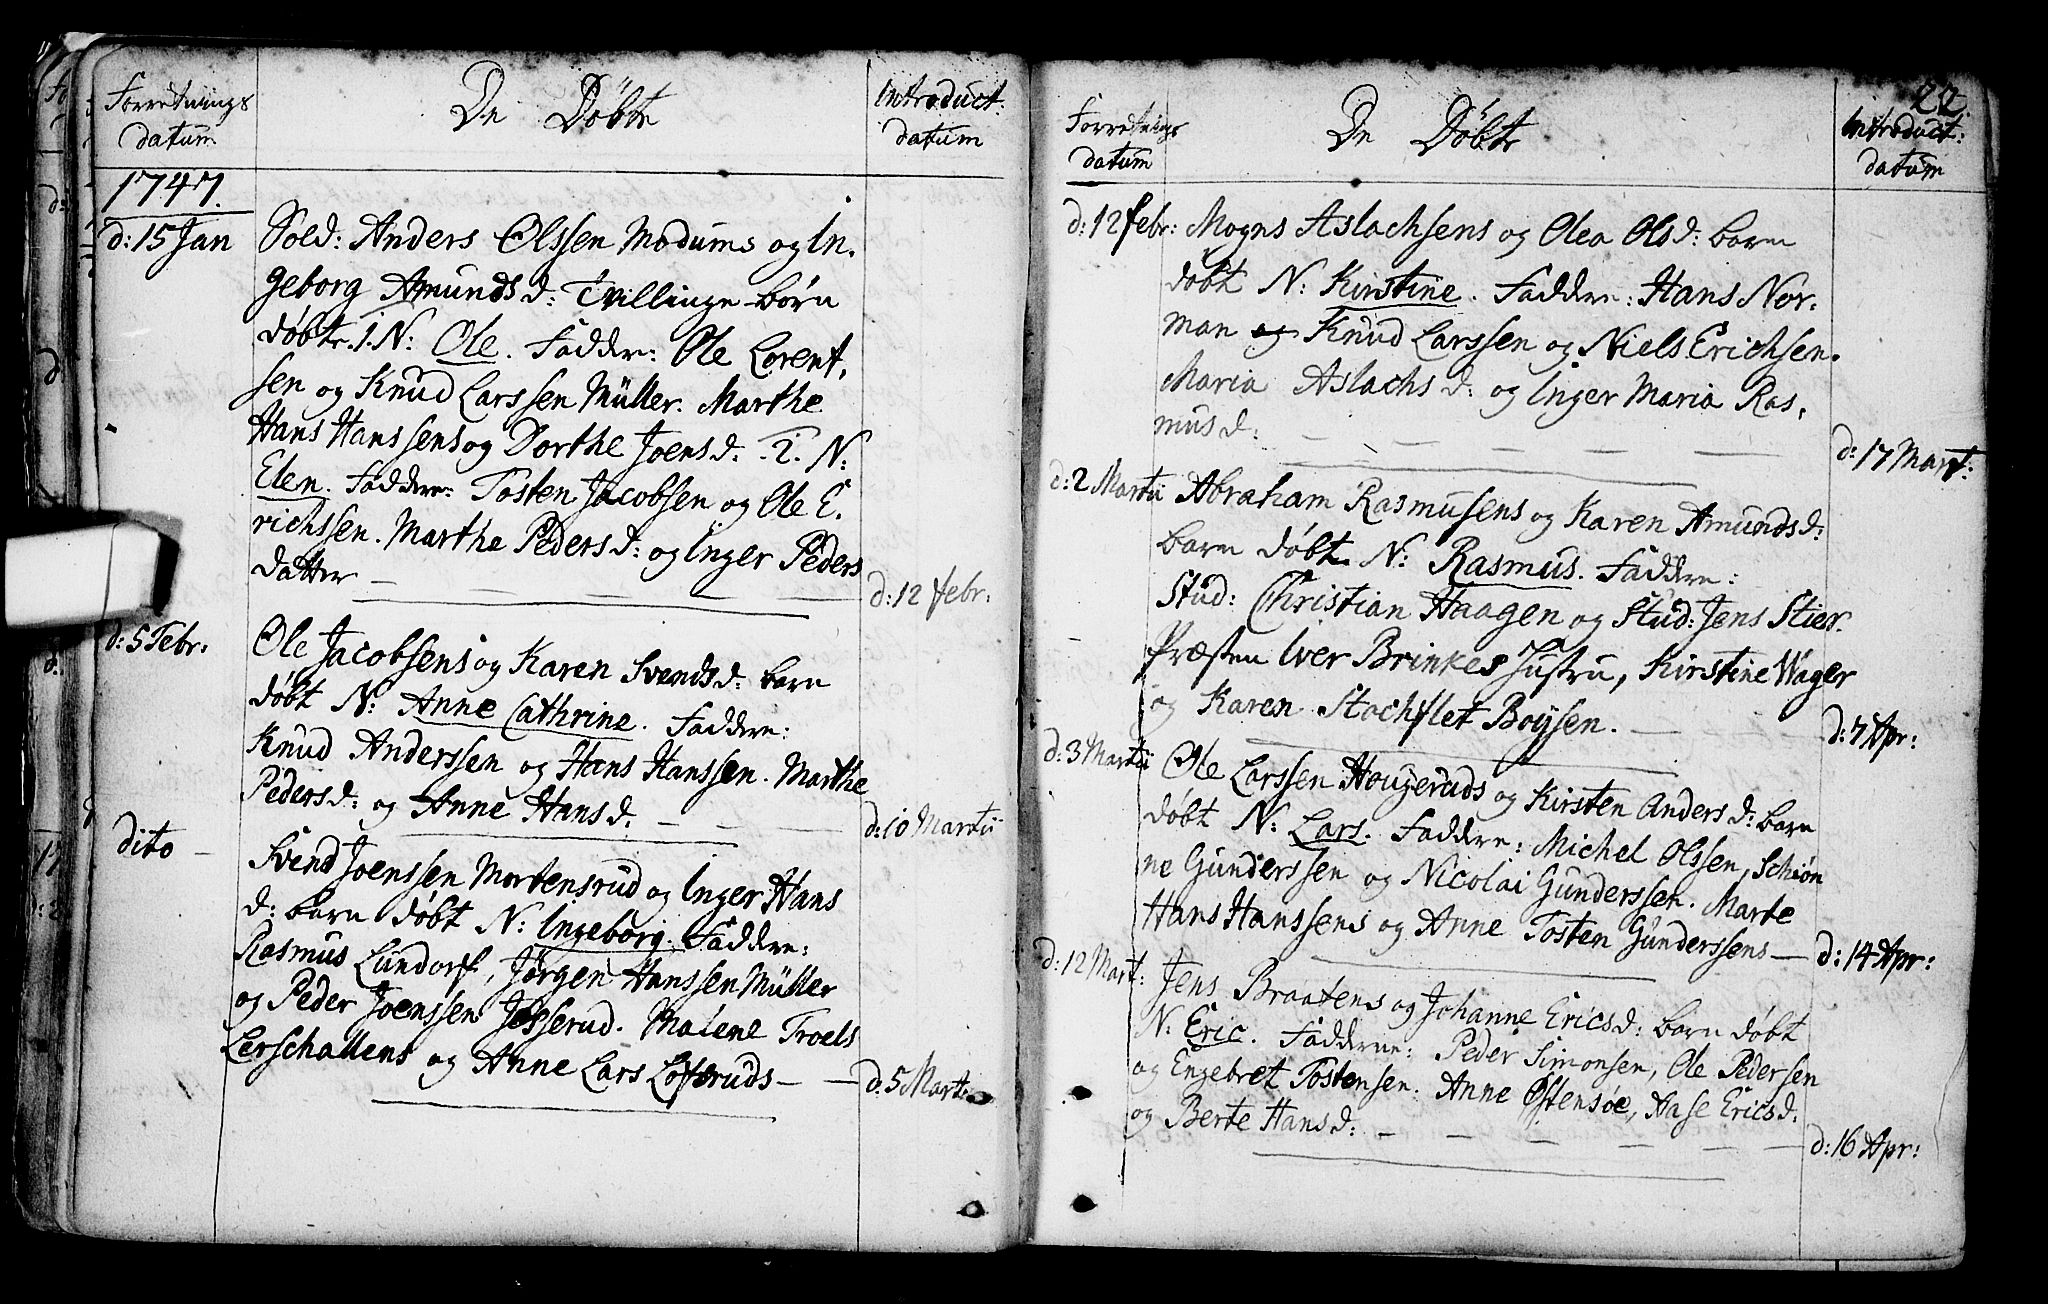 Forretnings
datum
De Döbte
Introduct:
datum
1747.
d: 15 Jan
Sold: Anders Olssen Modums og In-
geborg Amundsd: Tvillinge börn
döbte. 1. N: Ole. Faddre: Ole Lorent,
sen og Knud Larssen Müller. Marthe
Hans Hanssens og Dorthe Joensd: 2. N:
Elen. Faddre: Tosten Jacobsen og Ole E,
richssen. Marthe Pedersd: og Inger Peders
datter —
d: 12 febr:
d: 5 Febr:
Ole Jacobsens og Karen Svendsd: barn
döbt N: Anne Cathrine. Faddre:
Knud Anderssen og Hans Hanssen. Marthe
Pedersd: og Anne Hansd: — — —
d: 10 Martii
dito —
Svend Joenssen Mortensrud og Inger Hans
d: barn döbt N: Ingeborg. Faddre:
Rasmus Lundorf, Jörgen Hanssen Müller
og Peder Joenssen Jesserud. Malene Troels
Lerschallens og Anne Lars Lofsruds — —
d: 5 Mart:
22.
Forretnings
datum
De Döbte
Introduct:
datum
d: 12 febr:
Mogns Aslachsens og Olea Olsd: barn
döbt N: Kirstine. Faddre: Hans Nor-
man og Knud Larssen og Niels Erichsen.
Maria Aslachsd: og Inger Maria Ras,
musd: — — — — —
d: 17 Mart:
d: 2 Martii
Abraham Rasmusens og Karen Amundsd:
barn döbt N: Rasmus. Faddre:
Stud: Christian Haagen og Stud: Jens Stier.
Præsten Iver Brinkes Hustru, Kirstine Wager
og Karen Stochflet Boysen. —
d: 7 Apr:
d: 3 Martii
Ole Larssen Hougeruds og Kirsten Andersd: barn
döbt N: Lars. Faddre: Michel Olssen, Schiön
ne Gunderssen og Nicolai Gunderssen. Marte
Hans Hanssens og Anne Tosten Gunderssens —
d: 14 Apr:
d: 12 Mart:
Jens Braatens og Johanne Ericsd: barn döbt
N: Eric. Fadderne: Peder Simonsen, Ole Pedersen
og Engebret Tostensen. Anne Östensöe, Aase Ericsd:
og Berte Hansd: — — — — — —
d: 16 Apr: